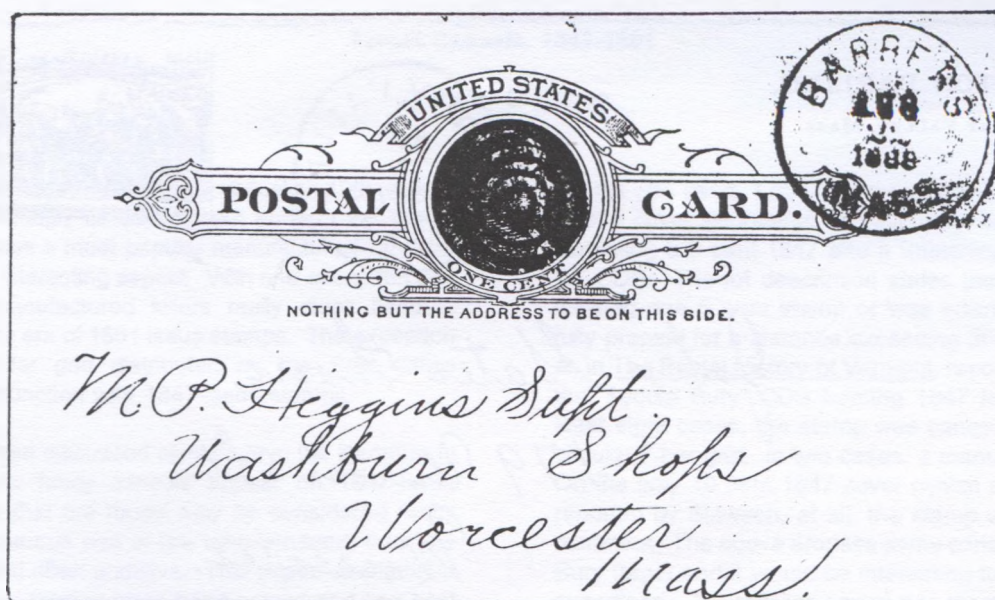 UNITED STATES
POSTAL CARD.
ONE CENT
NOTHING BUT THE ADDRESS TO BE ON THIS SIDE.
BARRE
AUG
1888
MASS
M. P. Higgins Supt.
Washburn Shops
Worcester
Mass.